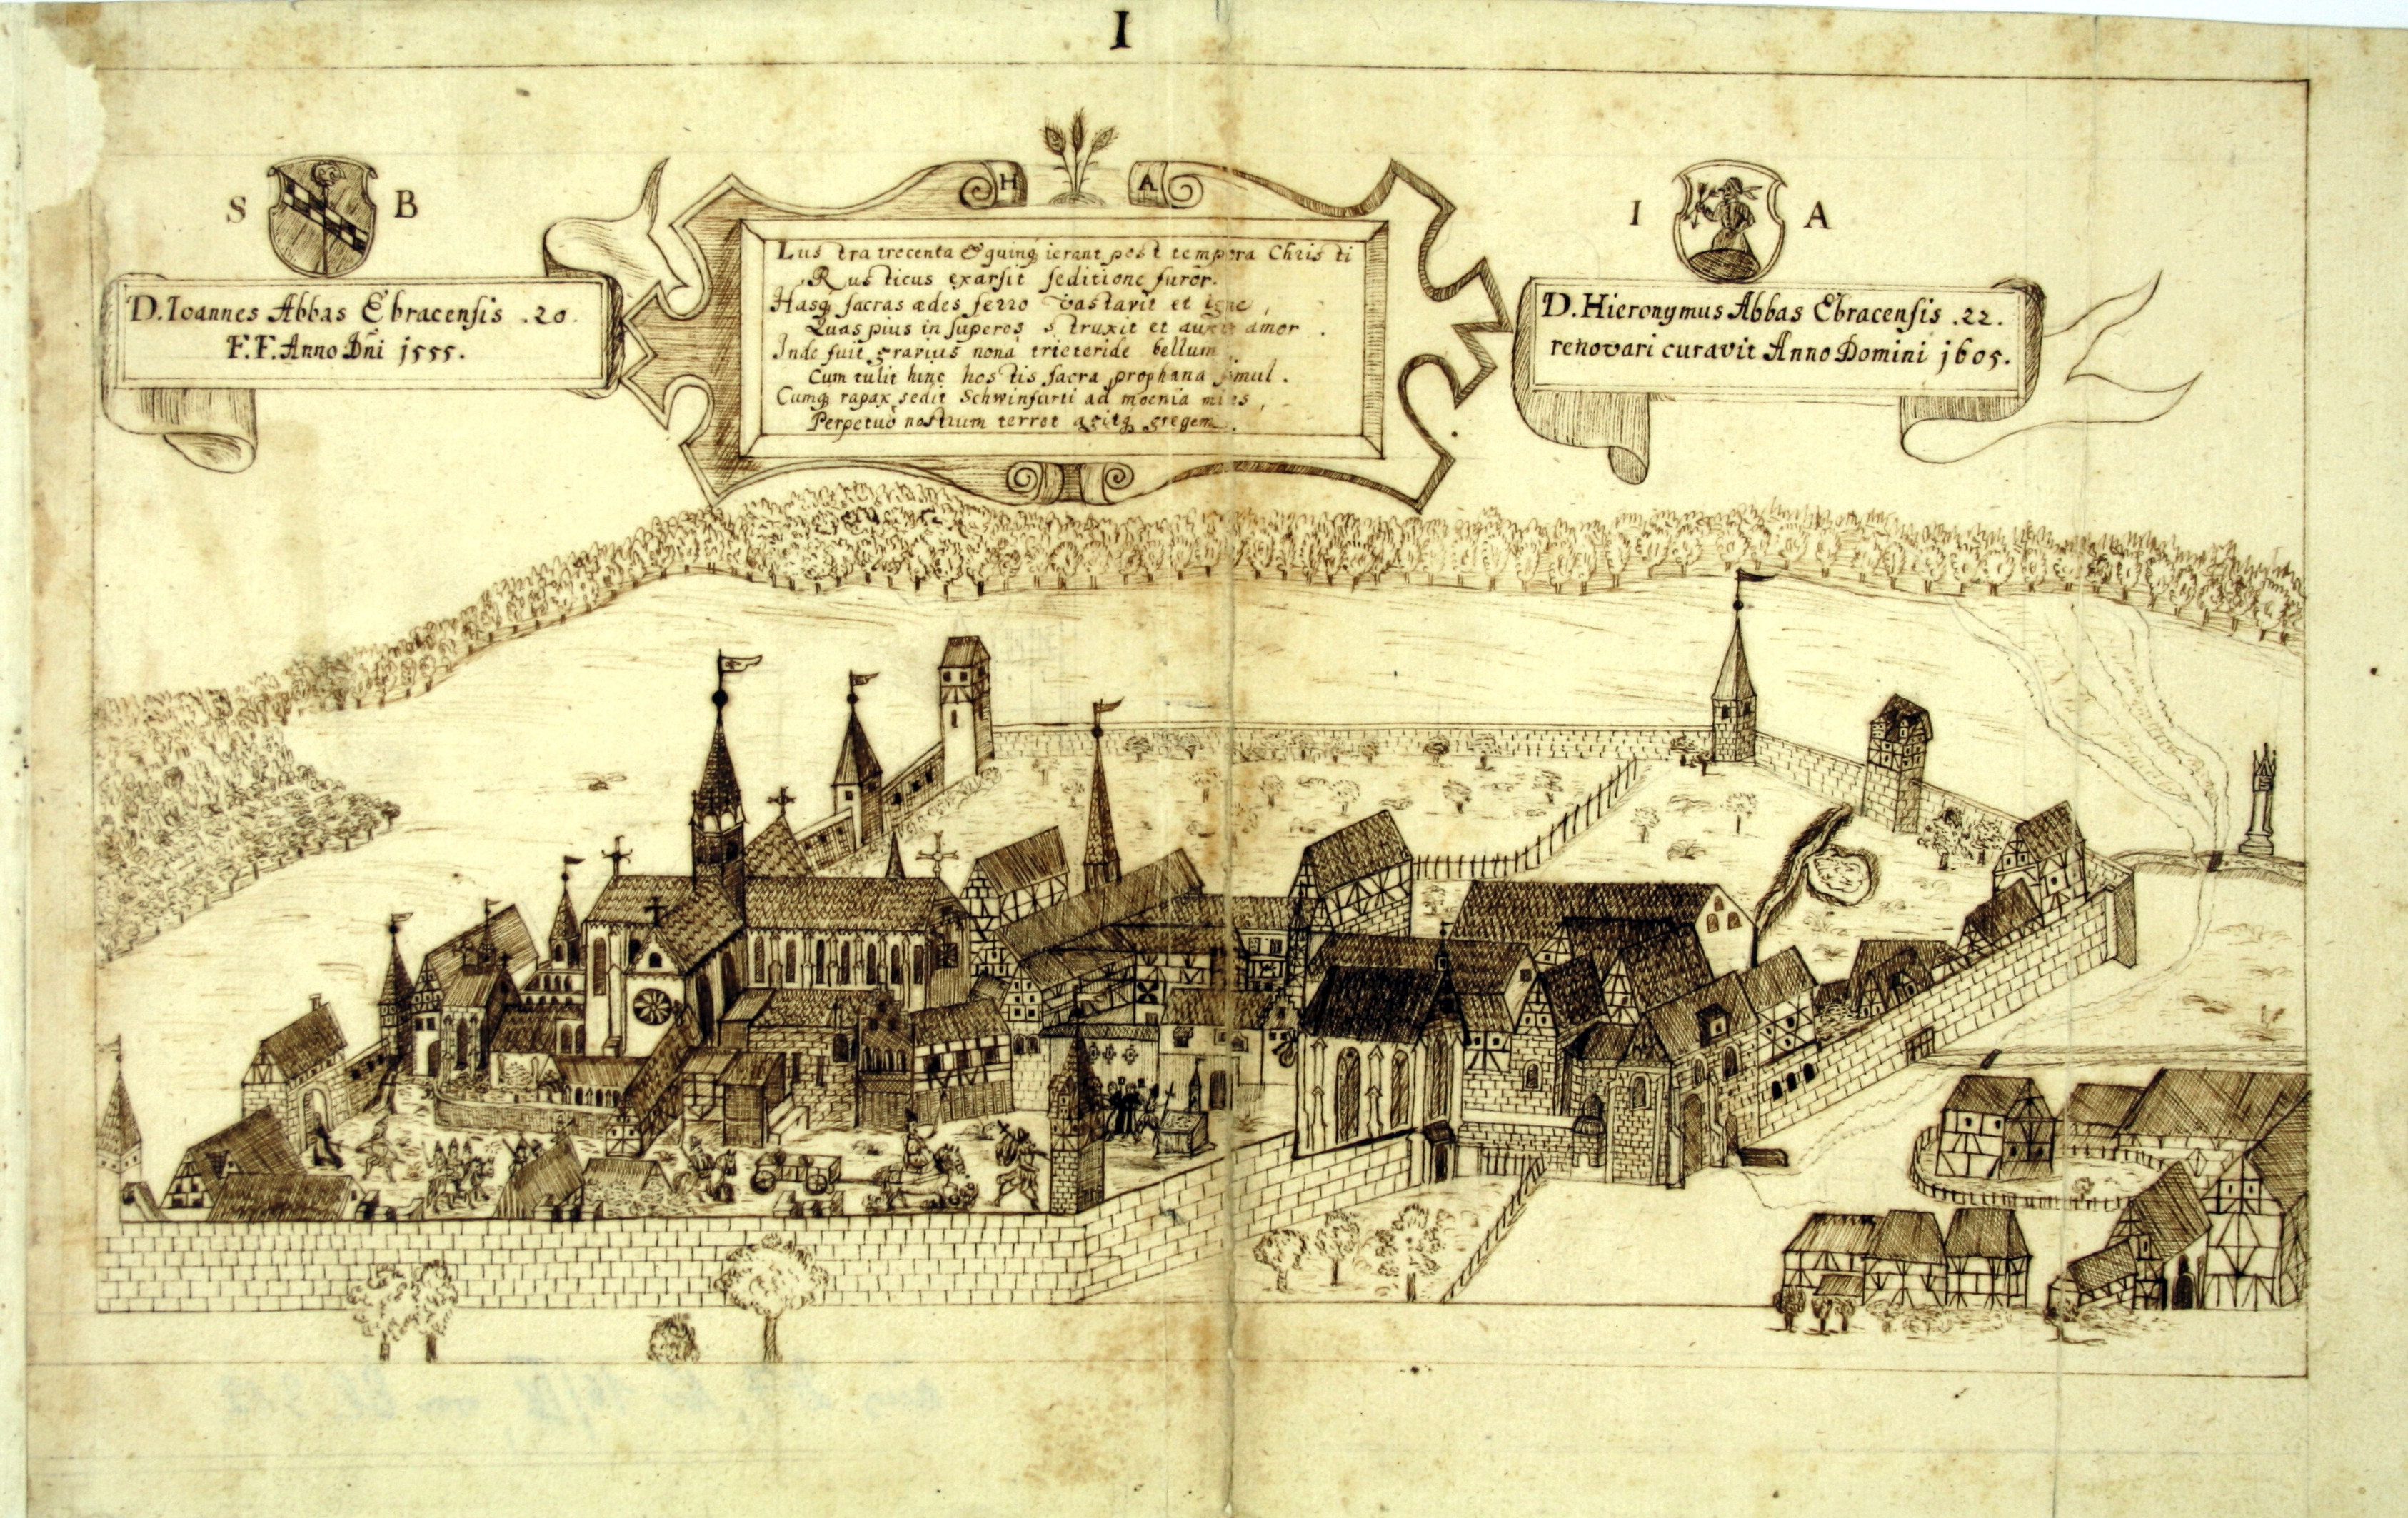 I
S B
D. Ioannes Abbas Ebracensis .20.
F.F. Anno Dñi 1555.
H A
Lustra trecenta & quinq̃ ierant post tempora Christi
Rusticus exarsit seditione furor.
Hasq̃ sacras ædes ferro vastavit et igne,
Quas pius in superos struxit et auxit amor.
Inde fuit gravius nona trieteride bellum,
Cum tulit hinc hostis sacra prophana simul.
Cumq̃ rapax sedit Schwinfurti ad moenia miles,
Perpetuò nostrum terret agitq̃ gregem.
I A
D. Hieronymus Abbas Ebracensis .22.
renovari curavit Anno Domini 1605.